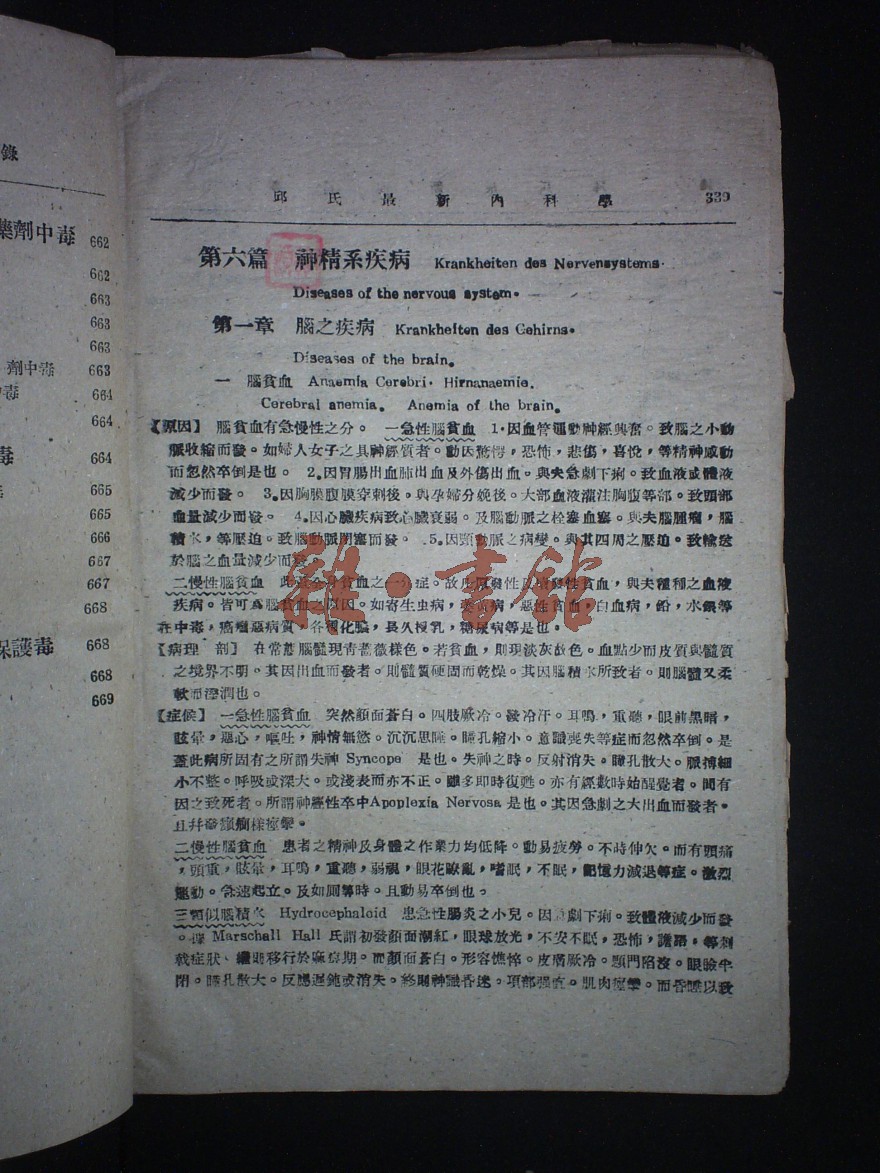 錄
藥劑中毒 662
662
663
663
663
劑中毒 663
中毒 664
664
毒 664
665
665
666
667
667
668
保護毒 668
668
669
邱氏最新內科學 339
第六篇 神精系疾病 Krankheiten des Nervensystems.
Diseases of the nervous system.
第一章 腦之疾病 Krankheiten des Gehirns.
Diseases of the brain.
一 腦貧血 Anaemia Cerebri. Hirnanaemie.
Cerebral anemia. Anemia of the brain.
【原因】 腦貧血有急慢性之分。 一急性腦貧血 1.因血管運動神經興奮。致腦之小動
脈收縮而發。如婦人女子之具神經質者。動因驚愕,恐怖,悲傷,喜悅,等精神感動
而忽然卒倒是也。 2.因胃腸出血肺出血及外傷出血。與夫急劇下痢。致血液或體液
減少而發。 3.因胸膜腹膜穿刺後。與孕婦分娩後。大部血液灌注胸腹等部。致頭部
血量減少而發。 4.因心臟疾病致心臟衰弱。及腦動脈之栓塞血塞。與夫腦腫瘤,腦
積水,等壓迫。致腦動脈閉塞而發。 5.因頸動脈之病變。與其四周之壓迫。致輸送
於腦之血量減少而發。
二慢性腦貧血 此乃全身貧血之一分症。故凡原發性及續發性貧血,與夫種種之血液
疾病。皆可為腦貧血之原因。如寄生虫病,萎黃病,惡性貧血,白血病,鉛,水銀等
在中毒,癌瘤惡病質,各種化膿,長久授乳,糖尿病等是也。
【病理 剖】 在常態腦髓現青薔薇樣色。若貧血,則現淡灰故色。血點少而皮質與髓質
之境界不明。其因出血而發者。則髓質硬固而乾燥。其因腦積水所致者。則腦髓又柔
軟而溼潤也。
【症候】 一急性腦貧血 突然顏面蒼白。四肢厥冷。發冷汗。耳鳴,重聽,眼前黑暗,
眩暈,惡心,嘔吐,神情無慾。沉沉思睡。瞳孔縮小。意識喪失等症而忽然卒倒。是
蓋此病所固有之所謂失神 Syncope 是也。失神之時。反射消失。瞳孔散大。脈搏細
小不整。呼吸或深大。或淺表而亦不正。雖多即時復甦。亦有經數時始醒覺者。間有
因之致死者。所謂神經性卒中Apoplexia Nervosa 是也。其因急劇之大出血而發者。
且幷發癲癇樣痙攣。
二慢性腦貧血 患者之精神及身體之作業力均低降。動易疲勞。不時伸欠。而有頭痛
,頭重,眩暈,耳鳴,重聽,弱視,眼花繚亂,嗜眠,不眠,記憶力減退等症。激烈
運動。急速起立。及如厠等時。且動易卒倒也。
三類似腦積水 Hydrocephaloid 患急性腸炎之小兒。因急劇下痢。致體液減少而發
。據 Marschall Hall 氏謂初發顏面潮紅,眼球放光,不安不眠,恐怖,譫語,等刺
戟症狀、繼則移行於麻痺期。而顏面蒼白。形容憔悴。皮膚厥冷。顖門陷沒。眼瞼半
閉。瞳孔散大。反應遲鈍或消失。終則神識昏迷。項部强直。肌肉痙攣。而昏睡以致
雜·書館